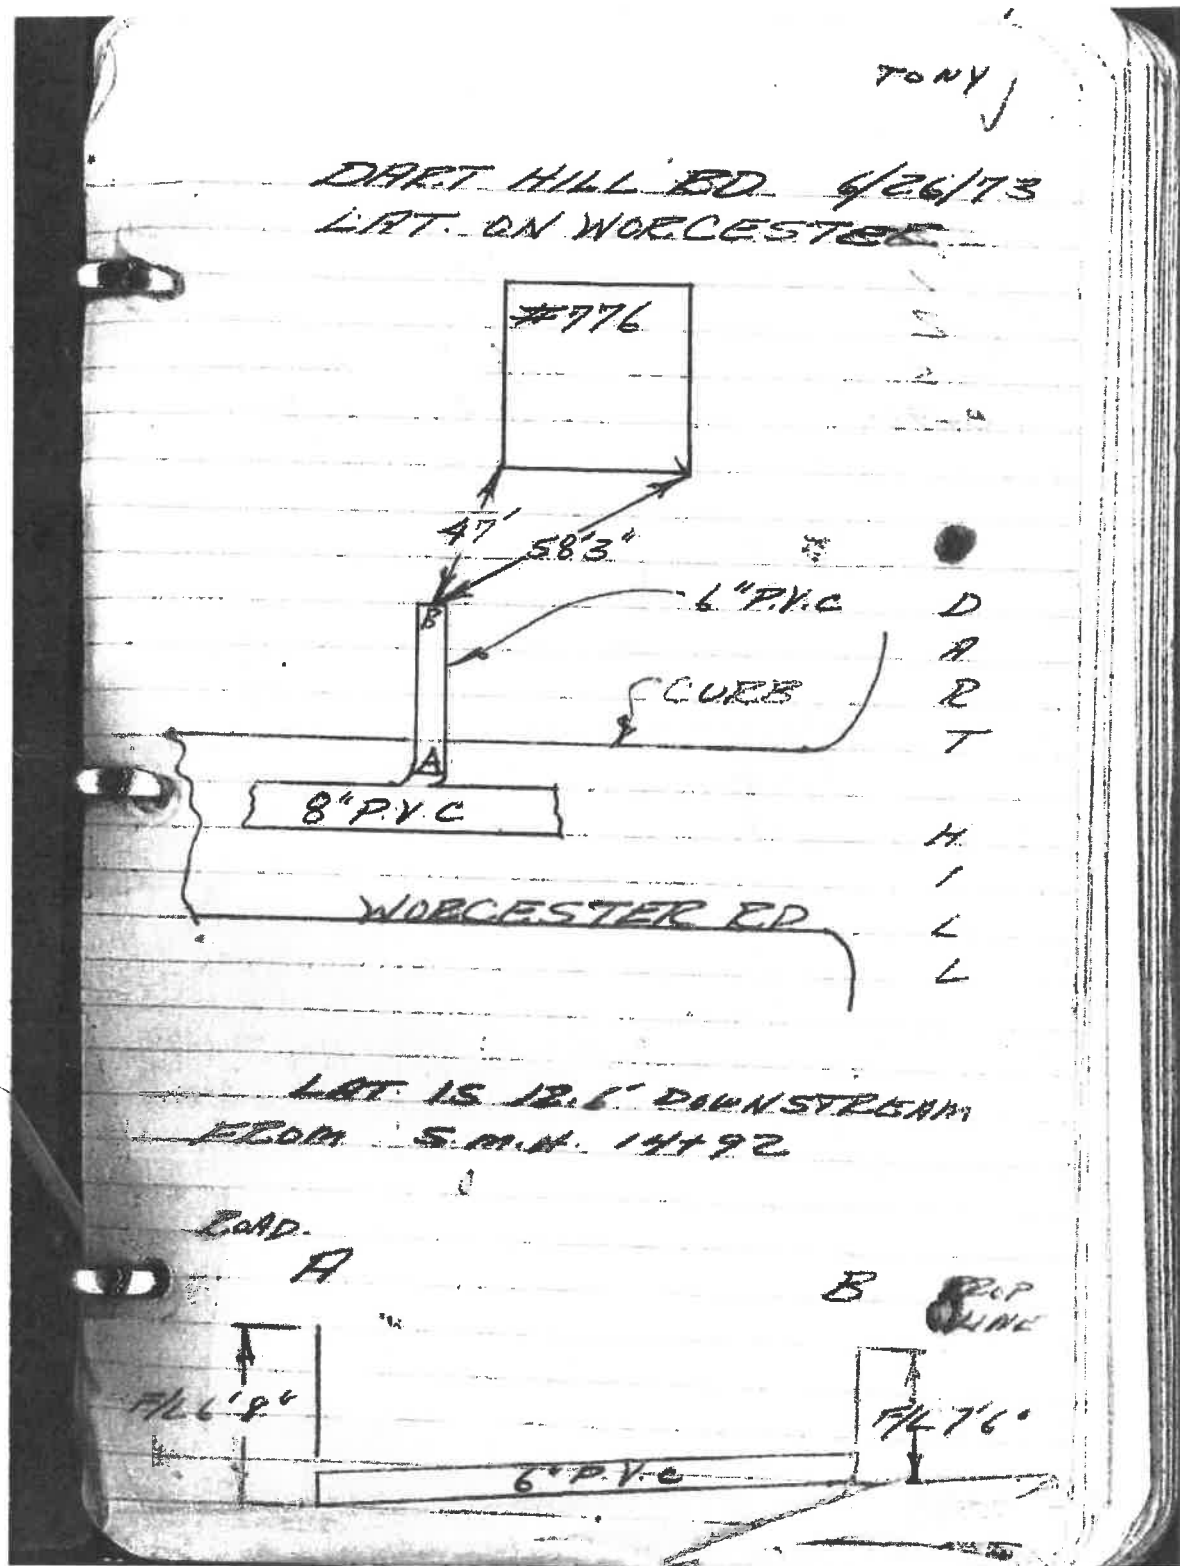 TONY
DART HILL RD 6/26/73
LAT. ON WORCESTER
#776
47'
58'3"
6" P.V.C
B
CURB
A
8" P.V.C
WORCESTER RD
DART HILL
LAT. IS 12.6' DOWNSTREAM
FROM S.M.H. 14+92
ROAD.
A
B
PROP
LINE
F/L 6'8"
F/L 7'6"
6" P.V.C